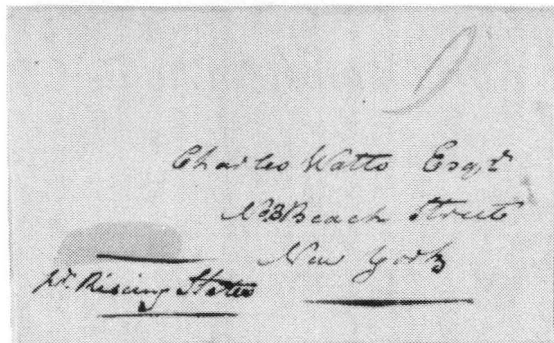 Charles Watts Esqr
No 3 Beach Street
New York
pr. Rising States